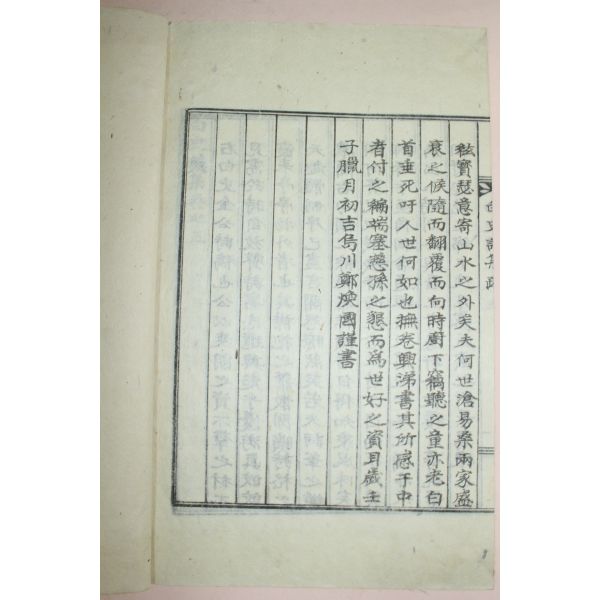 紘寶瑟意寄山水之外矣夫何世滄易桑兩家盛
衰之候隨而翻覆而向時廚下竊聽之童亦老白
首垂死吁人世何如也撫卷興涕書其所感于中
者付之編端塞慈孫之懇而爲世好之資耳歲壬
子臘月初吉烏川鄭煥國謹書